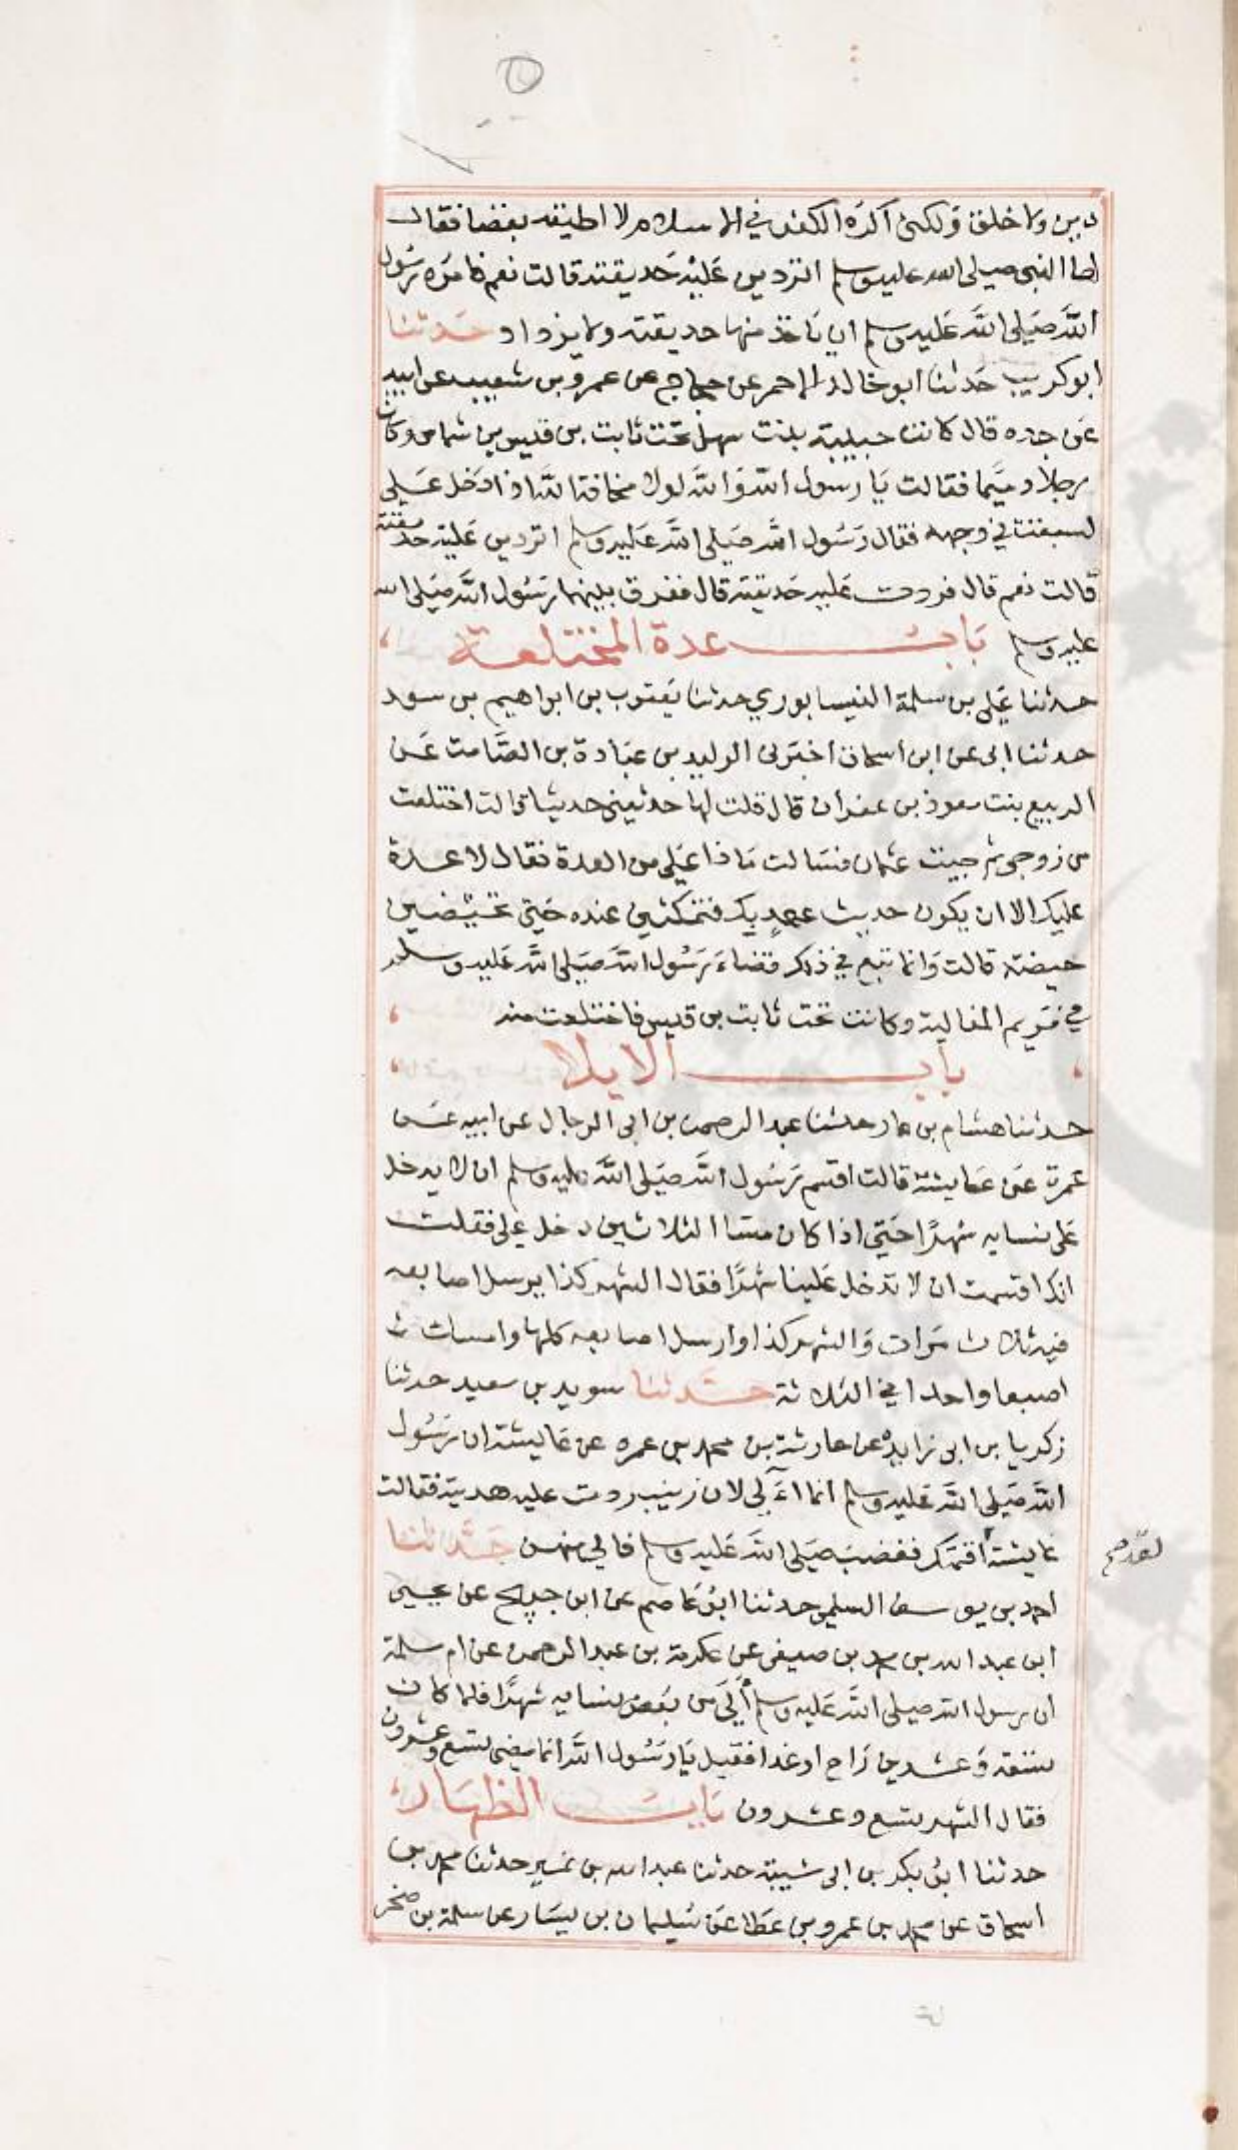 دين ولا خلق ولكني اكره الكفر في الاسلام لا اطيقه بغضا فقال
لها النبي صلى الله عليه وسلم اتردين عليه حديقته قالت نعم فامره رسول
الله صلى الله عليه وسلم ان ياخذ منها حديقته ولا يزداد حدثنا
ابو كريب حدثنا ابو خالد الاحمر عن حجاج عن عمرو بن شعيب عن ابيه
عن جده قال كانت حبيبة بنت سهل تحت ثابت بن قيس بن شماس وكان
رجلا دميما فقالت يا رسول الله والله لولا مخافة الله اذا دخل علي
لبسقت في وجهه فقال رسول الله صلى الله عليه وسلم اتردين عليه حديقته
قالت نعم قال فردت عليه حديقته قال ففرق بينهما رسول الله صلى الله
عليه وسلم باب عدة المختلعة
حدثنا علي بن سلمة النيسابوري حدثنا يعقوب بن ابراهيم بن سعد
حدثنا ابي عن ابن اسحاق اخبرني الوليد بن عبادة بن الصامت عن
الربيع بنت معوذ بن عفران قال قلت لها حدثيني حديثا قالت اختلعت
من زوجي ثم جيت عثمان فسالت ماذا علي من العدة فقال لا عدة
عليك الا ان يكون حديث عهد بك فتمكثين عنده حتى تحيضين
حيضة قالت وانما تبع في ذلك قضاء رسول الله صلى الله عليه وسلم
في مريم المغالية وكانت تحت ثابت بن قيس فاختلعت منه
باب الايلا
حدثنا هشام بن عمار حدثنا عبد الرحمن بن ابي الرجال عن ابيه عن
عمرة عن عايشة قالت اقسم رسول الله صلى الله عليه وسلم ان لا يدخل
على نسايه شهرا حتى اذا كان مسا الثلاثين دخل علي فقلت
انك اقسمت ان لا تدخل علينا شهرا فقال الشهر كذا يرسل اصابعه
فيه ثلاث مرات والشهر كذا وارسل اصابعه كلها وامسك
اصبعا واحدا في الثلاثة حدثنا سويد بن سعيد حدثنا
زكريا بن ابي زايده عن حارثة بن محمد عن عمره عن عايشة ان رسول
الله صلى الله عليه وسلم انما الى لان زينب ردت عليه هديته فقالت
عايشة اقمتك فغضب صلى الله عليه وسلم فالى منهن حدثنا
لقد صح
احمد بن يوسف السلمي حدثنا ابو عاصم عن ابن جريج عن يحيى
ابن عبد الله بن محمد بن صيفي عن عكرمة بن عبد الرحمن عن ام سلمة
ان رسول الله صلى الله عليه وسلم الى من بعض نسايه شهرا فلما كان
تسعة وعشرين راح او غدا فقيل يا رسول الله انما مضى تسع وعشرون
فقال الشهر تسع وعشرون باب الظهار
حدثنا ابو بكر بن ابي شيبة حدثنا عبد الله بن نمير حدثنا محمد بن
اسحاق عن محمد بن عمرو بن عطا عن سليمان بن يسار عن سلمة بن صخر